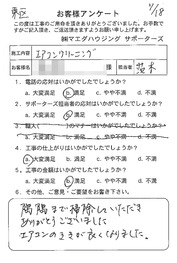 東区
1/18
お客様アンケート
この度は工事のご依頼を頂きありがとうございました。お手数で
すがご記入頂き、ご返送頂きますようお願い申し上げます。
㈱マエダハウジング サポーターズ
施工内容 エアコンクリーニング
お客様氏名 様 担当
1. 電話の応対はいかがでしたでしょうか？
a. 大変満足 b. 満足 c. やや不満 d. 不満
2. サポーターズ担当者の応対はいかがでしたでしょうか？
a. 大変満足 b. 満足 c. やや不満 d. 不満
a. 大変満足 b. 満足 c. やや不満 d. 不満
4. 工事の出来ばえはいかがでしたでしょうか？
a. 大変満足 b. 満足 c. やや不満 d. 不満
5. 工事の金額はいかがでしたでしょうか？
a. 大変満足 b. 満足 c. やや不満 d. 不満
6. その他、ご意見・ご要望をお書き下さい。
隅隅まで掃除していただき
ありがとうございました
エアコンのききが良くなりました。